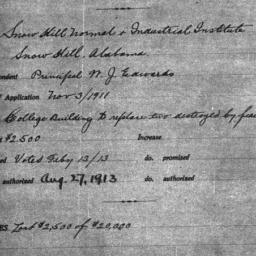 Snow Hill Normal & Industrial Institute
Snow Hill, Alabama.
ondent Principal W. J. Edwards
f Application Nov 3/1911
College Building to replace two destroyed by fire
$2500 Increase
ed Voted Feby 13/13 do. promised
authorized Aug. 27, 1913 do. authorized
ES. Last $2,500 of $20,000